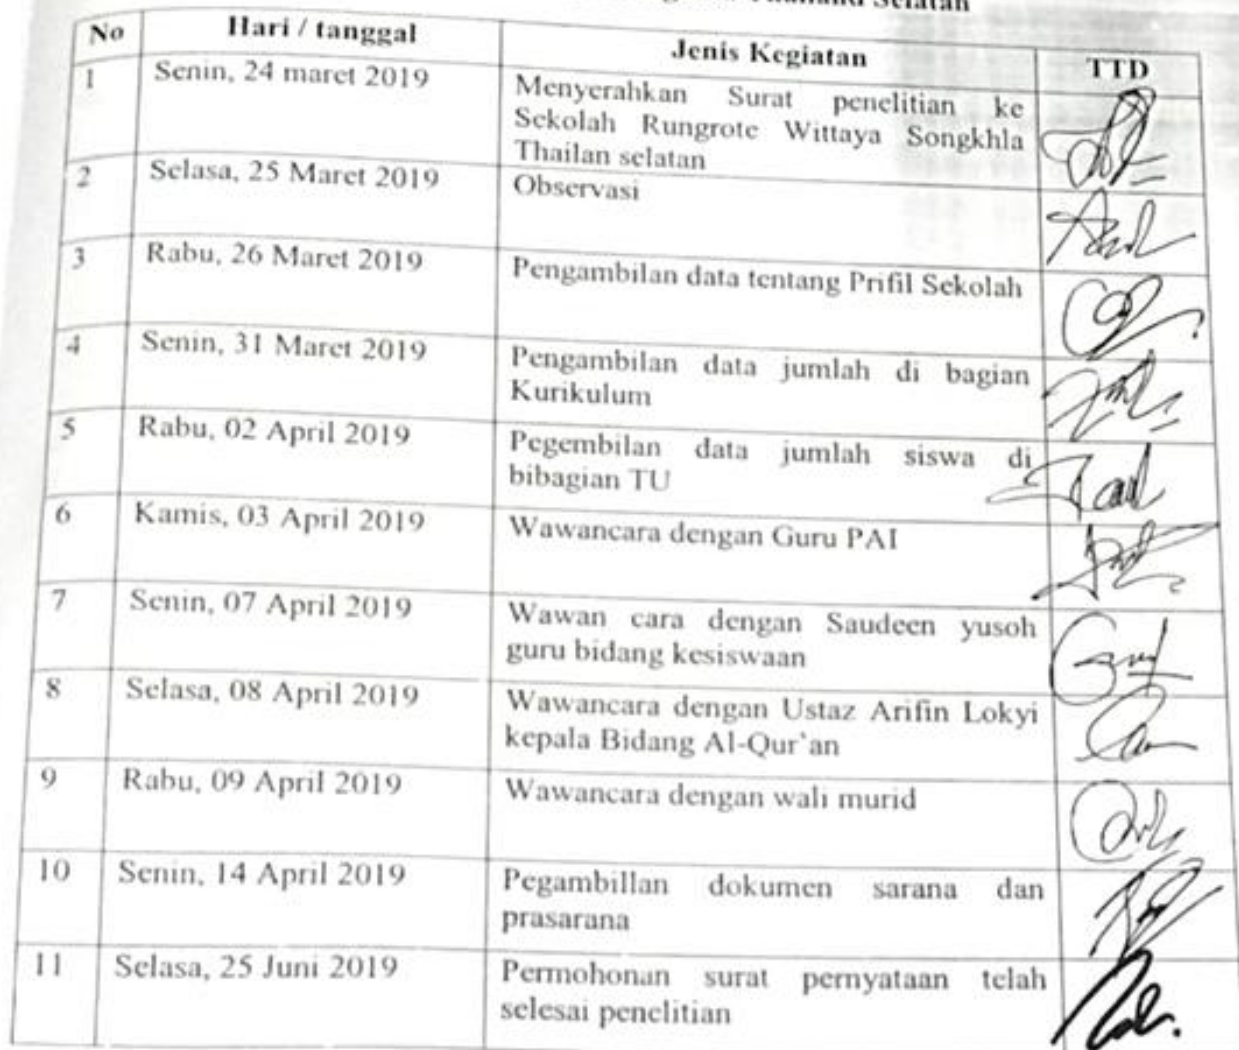 Selatan
No Hari / tanggal Jenis Kegiatan TTD
1 Senin, 24 maret 2019 Menyerahkan Surat penelitian ke
Sekolah Rungrote Wittaya Songkhla
Thailan selatan
2 Selasa, 25 Maret 2019 Observasi
3 Rabu, 26 Maret 2019 Pengambilan data tentang Prifil Sekolah
4 Senin, 31 Maret 2019 Pengambilan data jumlah di bagian
Kurikulum
5 Rabu, 02 April 2019 Pegembilan data jumlah siswa di
bibagian TU
6 Kamis, 03 April 2019 Wawancara dengan Guru PAI
7 Senin, 07 April 2019 Wawan cara dengan Saudeen yusoh
guru bidang kesiswaan
8 Selasa, 08 April 2019 Wawancara dengan Ustaz Arifin Lokyi
kepala Bidang Al-Qur`an
9 Rabu, 09 April 2019 Wawancara dengan wali murid
10 Senin, 14 April 2019 Pegambillan dokumen sarana dan
prasarana
11 Selasa, 25 Juni 2019 Permohonan surat pernyataan telah
selesai penelitian